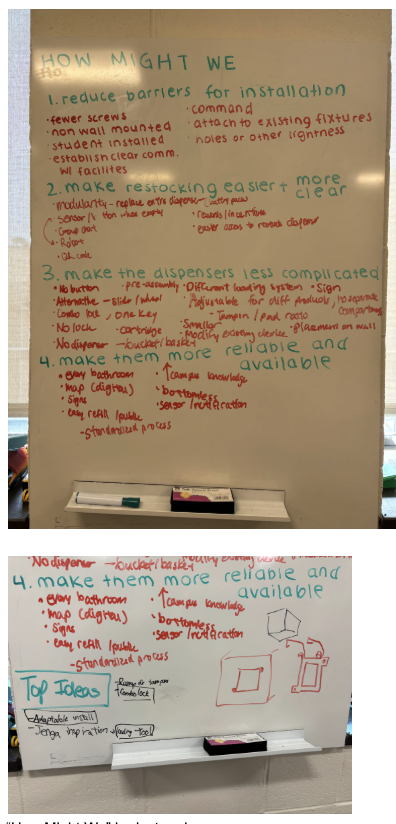 HOW MIGHT WE
1. reduce barriers for installation
· fewer screws
· non wall mounted
· student installed
· establish clear comm. w/ facilites
· command
· attach to existing fixtures
· holes or other lightness
2. make restocking easier + more clear
· modularity - replace entire dispenser
· sensor / when empty
· Robot
· QR code
· rewards / incentives
· easier access to restock dispenser
3. make the dispensers less complicated
· No button
· Alternative - slide / wheel
· Combo lock, one key
· No lock
· cartridge
· No dispenser - bucket / basket
· pre-assembly
· Different loading system
· Sign
· Adjustable for diff products, no separate compartments
· Tampin / pad ratio
· Smaller
· Modify existing device
· Placement on wall
4. make them more reliable and available
· every bathroom
· map (digital)
· signs
· easy refill / public
- standardized process
· ↑ campus knowledge
· bottomless
· sensor / notification
No dispenser - bucket / basket
4. make them more reliable and available
· every bathroom
· map (digital)
· signs
· easy refill / public
- standardized process
· ↑ campus knowledge
· bottomless
· sensor / notification
Top Ideas
- Adaptable install
- Jenga inspiration
+ Combo lock